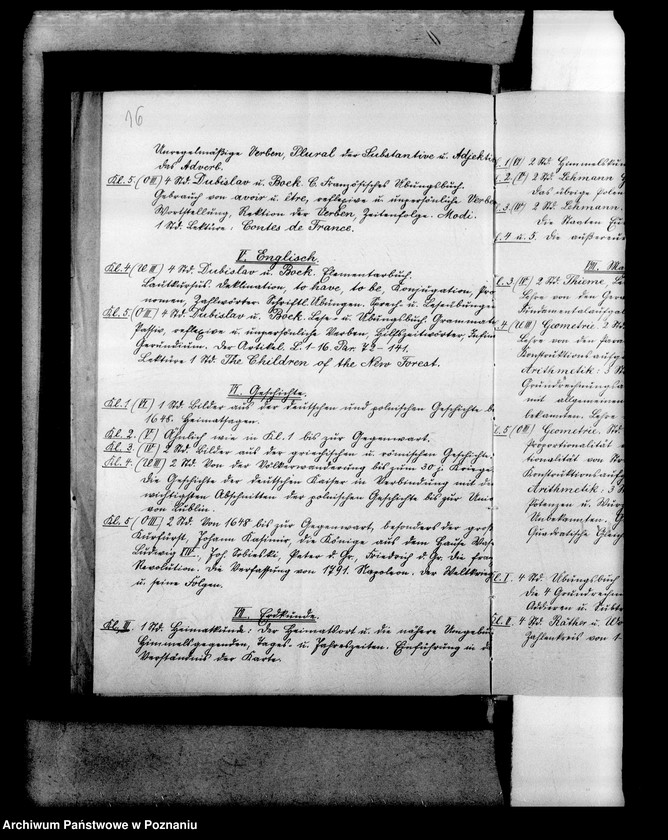 16
Unregelmäßige Verben, Plural der Substantive u. Adjektive
das Adverb.
Kl. 5. (O III) 4 Std. Dubislav u. Boek. C. Französisches Übungsbuch.
Gebrauch von avoir u. être, reflexive u. unpersönliche Verben
Wortstellung, Rektion der Verben, Zeitenfolge. Modi.
1 Std. Lektüre: Contes de France.
V. Englisch.
Kl. 4. (U III) 4 Std. Dubislav u. Boek. Elementarbuch.
Lautkursus. Deklination, to have, to be, Konjugation, Pro
nomen, Zahlwörter. Schriftl. Übungen. Sprech- u. Leseübungen
Kl. 5. (O III) 4 Std. Dubislav u. Boek. Lese- u. Übungsbuch. Grammatik
Passiv, reflexive u. unpersönliche Verben, Hilfszeitwörter, Infin
Gerundium. Der Artikel. L. 1-16. Par. 72-141.
Lektüre 1 Std. The Children of the New Forest.
VI. Geschichte.
Kl. 1 (VI) 1 Std. Bilder aus der deutschen und polnischen Geschichte b
1648. Heimatsagen.
Kl. 2. (V) Ähnlich wie in Kl. 1 bis zur Gegenwart.
Kl. 3. (IV) 2 Std. Bilder aus der griechischen u. römischen Geschichte.
Kl. 4. (U III) 2 Std. Von der Völkerwanderung bis zum 30 j. Kriege
Die Geschichte der deutschen Kaiser in Verbindung mit de
wichtigsten Abschnitten der polnischen Geschichte bis zur Unio
von Lublin.
Kl. 5 (O III) 2 Std. Von 1648 bis zur Gegenwart, besonders der groß
Kurfürst, Johann Kasimir, die Könige aus dem Hause Was-
Ludwig XIV., Joh. Sobieski, Peter d. Gr., Friedrich d. Gr. Die fran
Revolution. Die Verfassung von 1791. Napoleon. Der Weltkrieg
u. seine Folgen.
VII. Erdkunde.
Kl. III. 1 Std. Heimatkunde: Der Heimatort u. die nähere Umgebung
Himmelsgegenden, Tages- u. Jahreszeiten. Einführung in d
Verständnis der Karte.
l. 1 (VI) 2 Std. Himmelskun
l. 2 (V) 2 Std. Lehmann
das übrige Polen
l. 3 (IV) 2 Std. Lehmann.
Die Staaten Eu
l. 4 u. 5. Die außereu
VIII. Ma
l. 3 (IV) 2 Std. Thieme. L
Lehre von den Gera
Fundamentalaufgab
4 (U III) Geometrie. 2 Std
Lehre von den Para
Konstruktionsaufga
Arithmetik: 3 St
Grundrechnungsa
mit allgemeinen
bekannten. Lehre
l. 5 (O III) Geometrie. Std
Proportionalität
tionalität von Str
Konstruktionsaufg
Arithmetik: 3
Potenzen u. Wurz
Unbekannten. G
Quadratische Gleich
Kl. I. 4 Std. Übungsbuch
Die 4 Grundrechen
Addieren u. Subtr
Kl. II. 4 Std. Räther u. Wo
Zahlenkreis von 1-
Archiwum Państwowe w Poznaniu